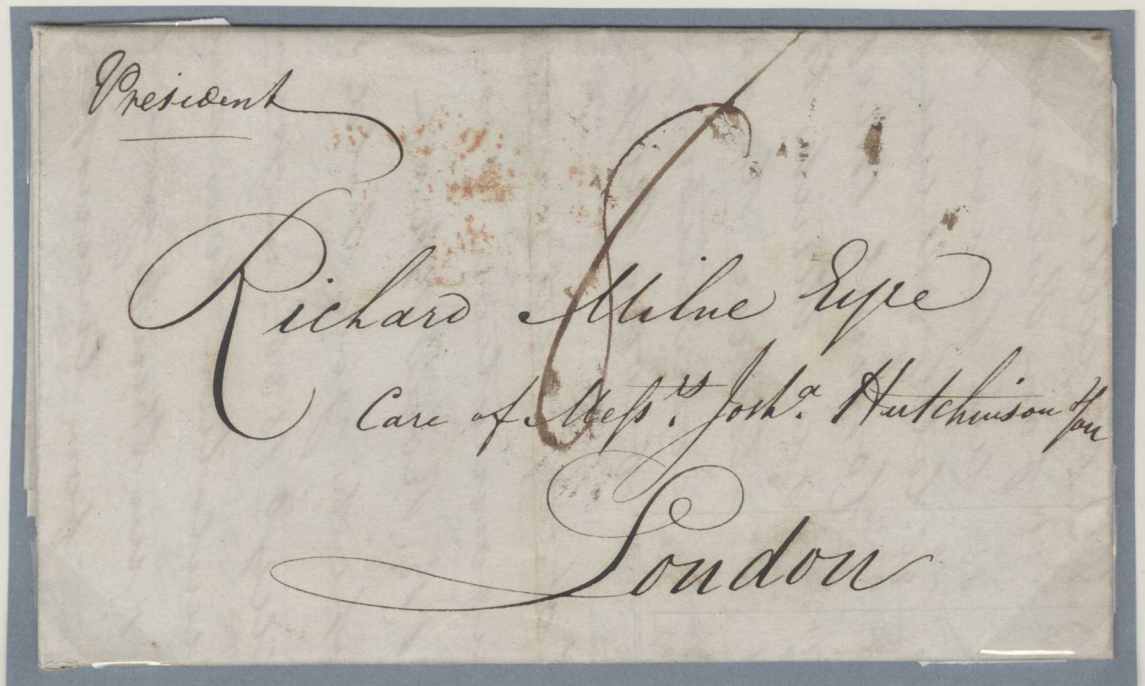 President
8
Richard Milne Esqre
Care of Mess.rs Josh.a Hutchinson & Son
London